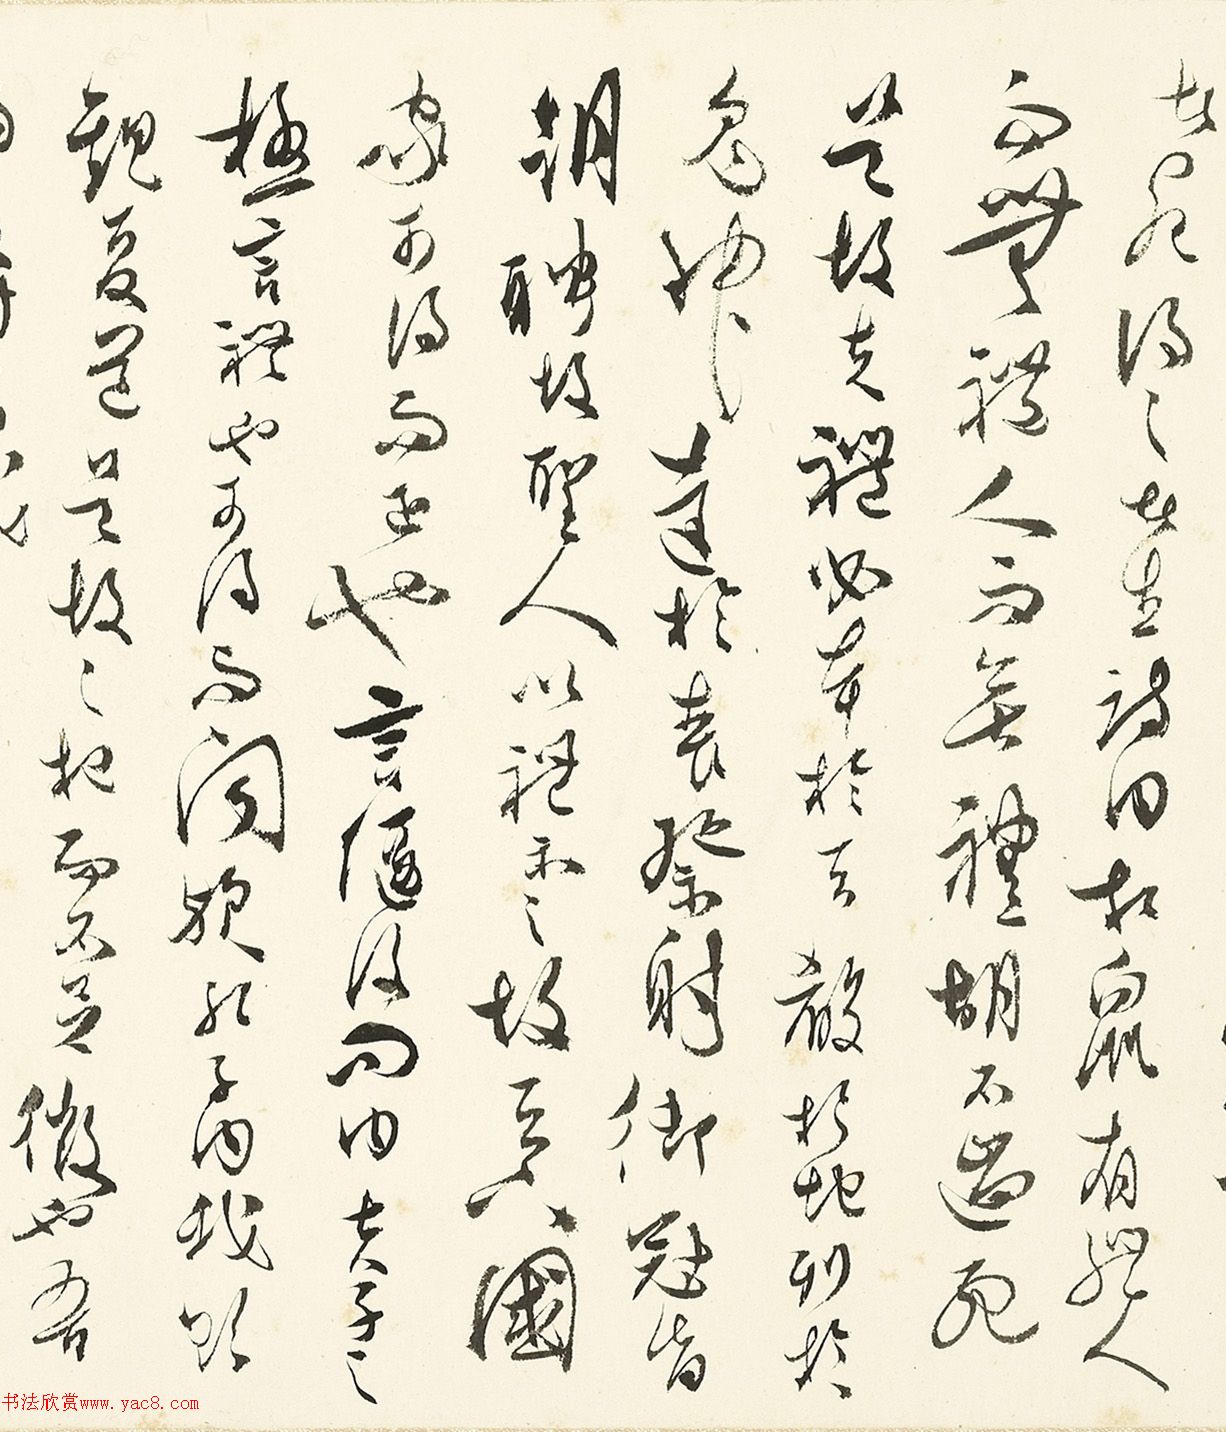 者死得之者生詩曰相鼠有體人
而無禮人而無禮胡不遄死
是故夫禮必本於天殽於地列於
鬼神達於喪祭射御冠昏
朝聘故聖人以禮示之故天下國
家可得而正也言偃復問曰夫子之
極言禮也可得而聞歟孔子曰我欲
觀夏道是故之杞而不足徵也吾
书法欣赏www.yac8.com